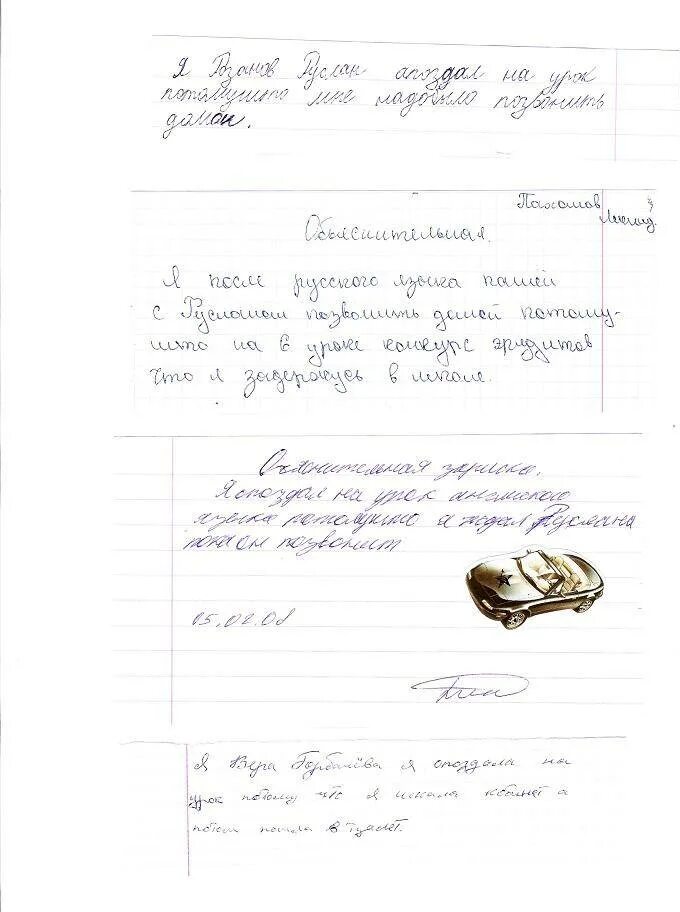 Я Розанов Руслан апоздал на урок
потомушто мне надобыло позвонить
домои.
Пахомов
Леонид.
Объяснительная.
Я после русского языка пашёл
с Русланом позвонить домой потому-
што на 6 уроке конкурс эрудитов
что я задержусь в школе.
записка.
Я опоздал на урок английского
языка потомушто я ждал Руслана
пока он позвонит
05.02.08
Я Вера Горбачёва я опоздала на
урок потому что я искала кбинет а
потом пошла в туалет.